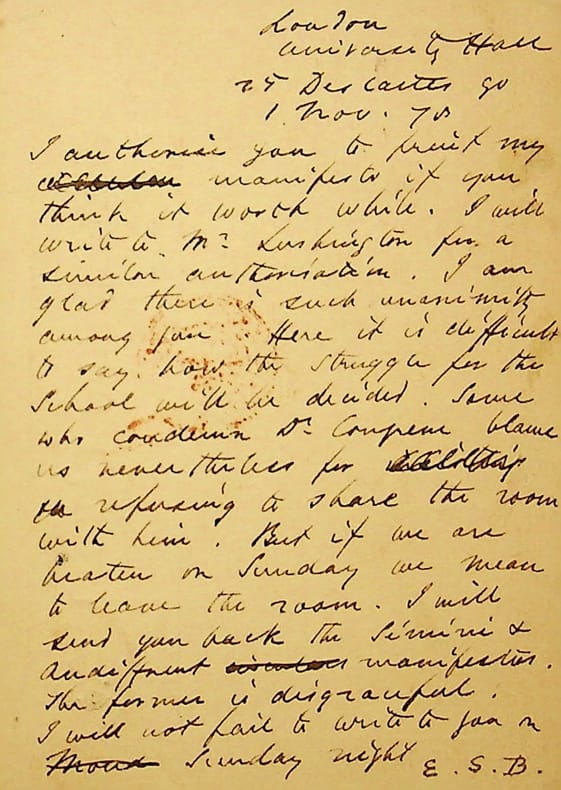 London
University Hall
25 Descartes go
1 Nov. 78
I authorise you to print my
manifesto if you
think it worth while. I will
write to Mr Lushington for a
similar authorisation. I am
glad there is such unanimity
among you. Here it is difficult
to say how the struggle for the
School will be decided. Some
who condemn Dr Congreve blame
us nevertheless for
refusing to share the room
with him. But if we are
beaten on Sunday we mean
to leave the room. I will
send you back the Sémérie &
Audiffrent manifestos.
The former is disgraceful.
I will not fail to write to you on
Sunday night
E. S. B.